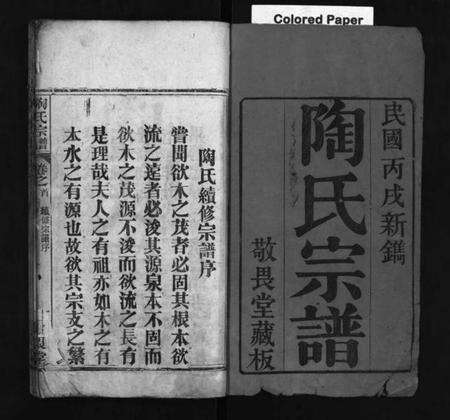 Colored Paper
民國丙戌新鐫
陶氏宗譜
敬畏堂藏板
陶氏續修宗譜序
嘗聞欲木之茂者必固其根本欲
流之遠者必浚其源泉本不固而
欲木之茂源不浚而欲流之長有
是理哉夫人之有祖亦如木之有
本水之有源也故欲其宗支之繁
陶氏宗譜
卷之首
續修宗譜序